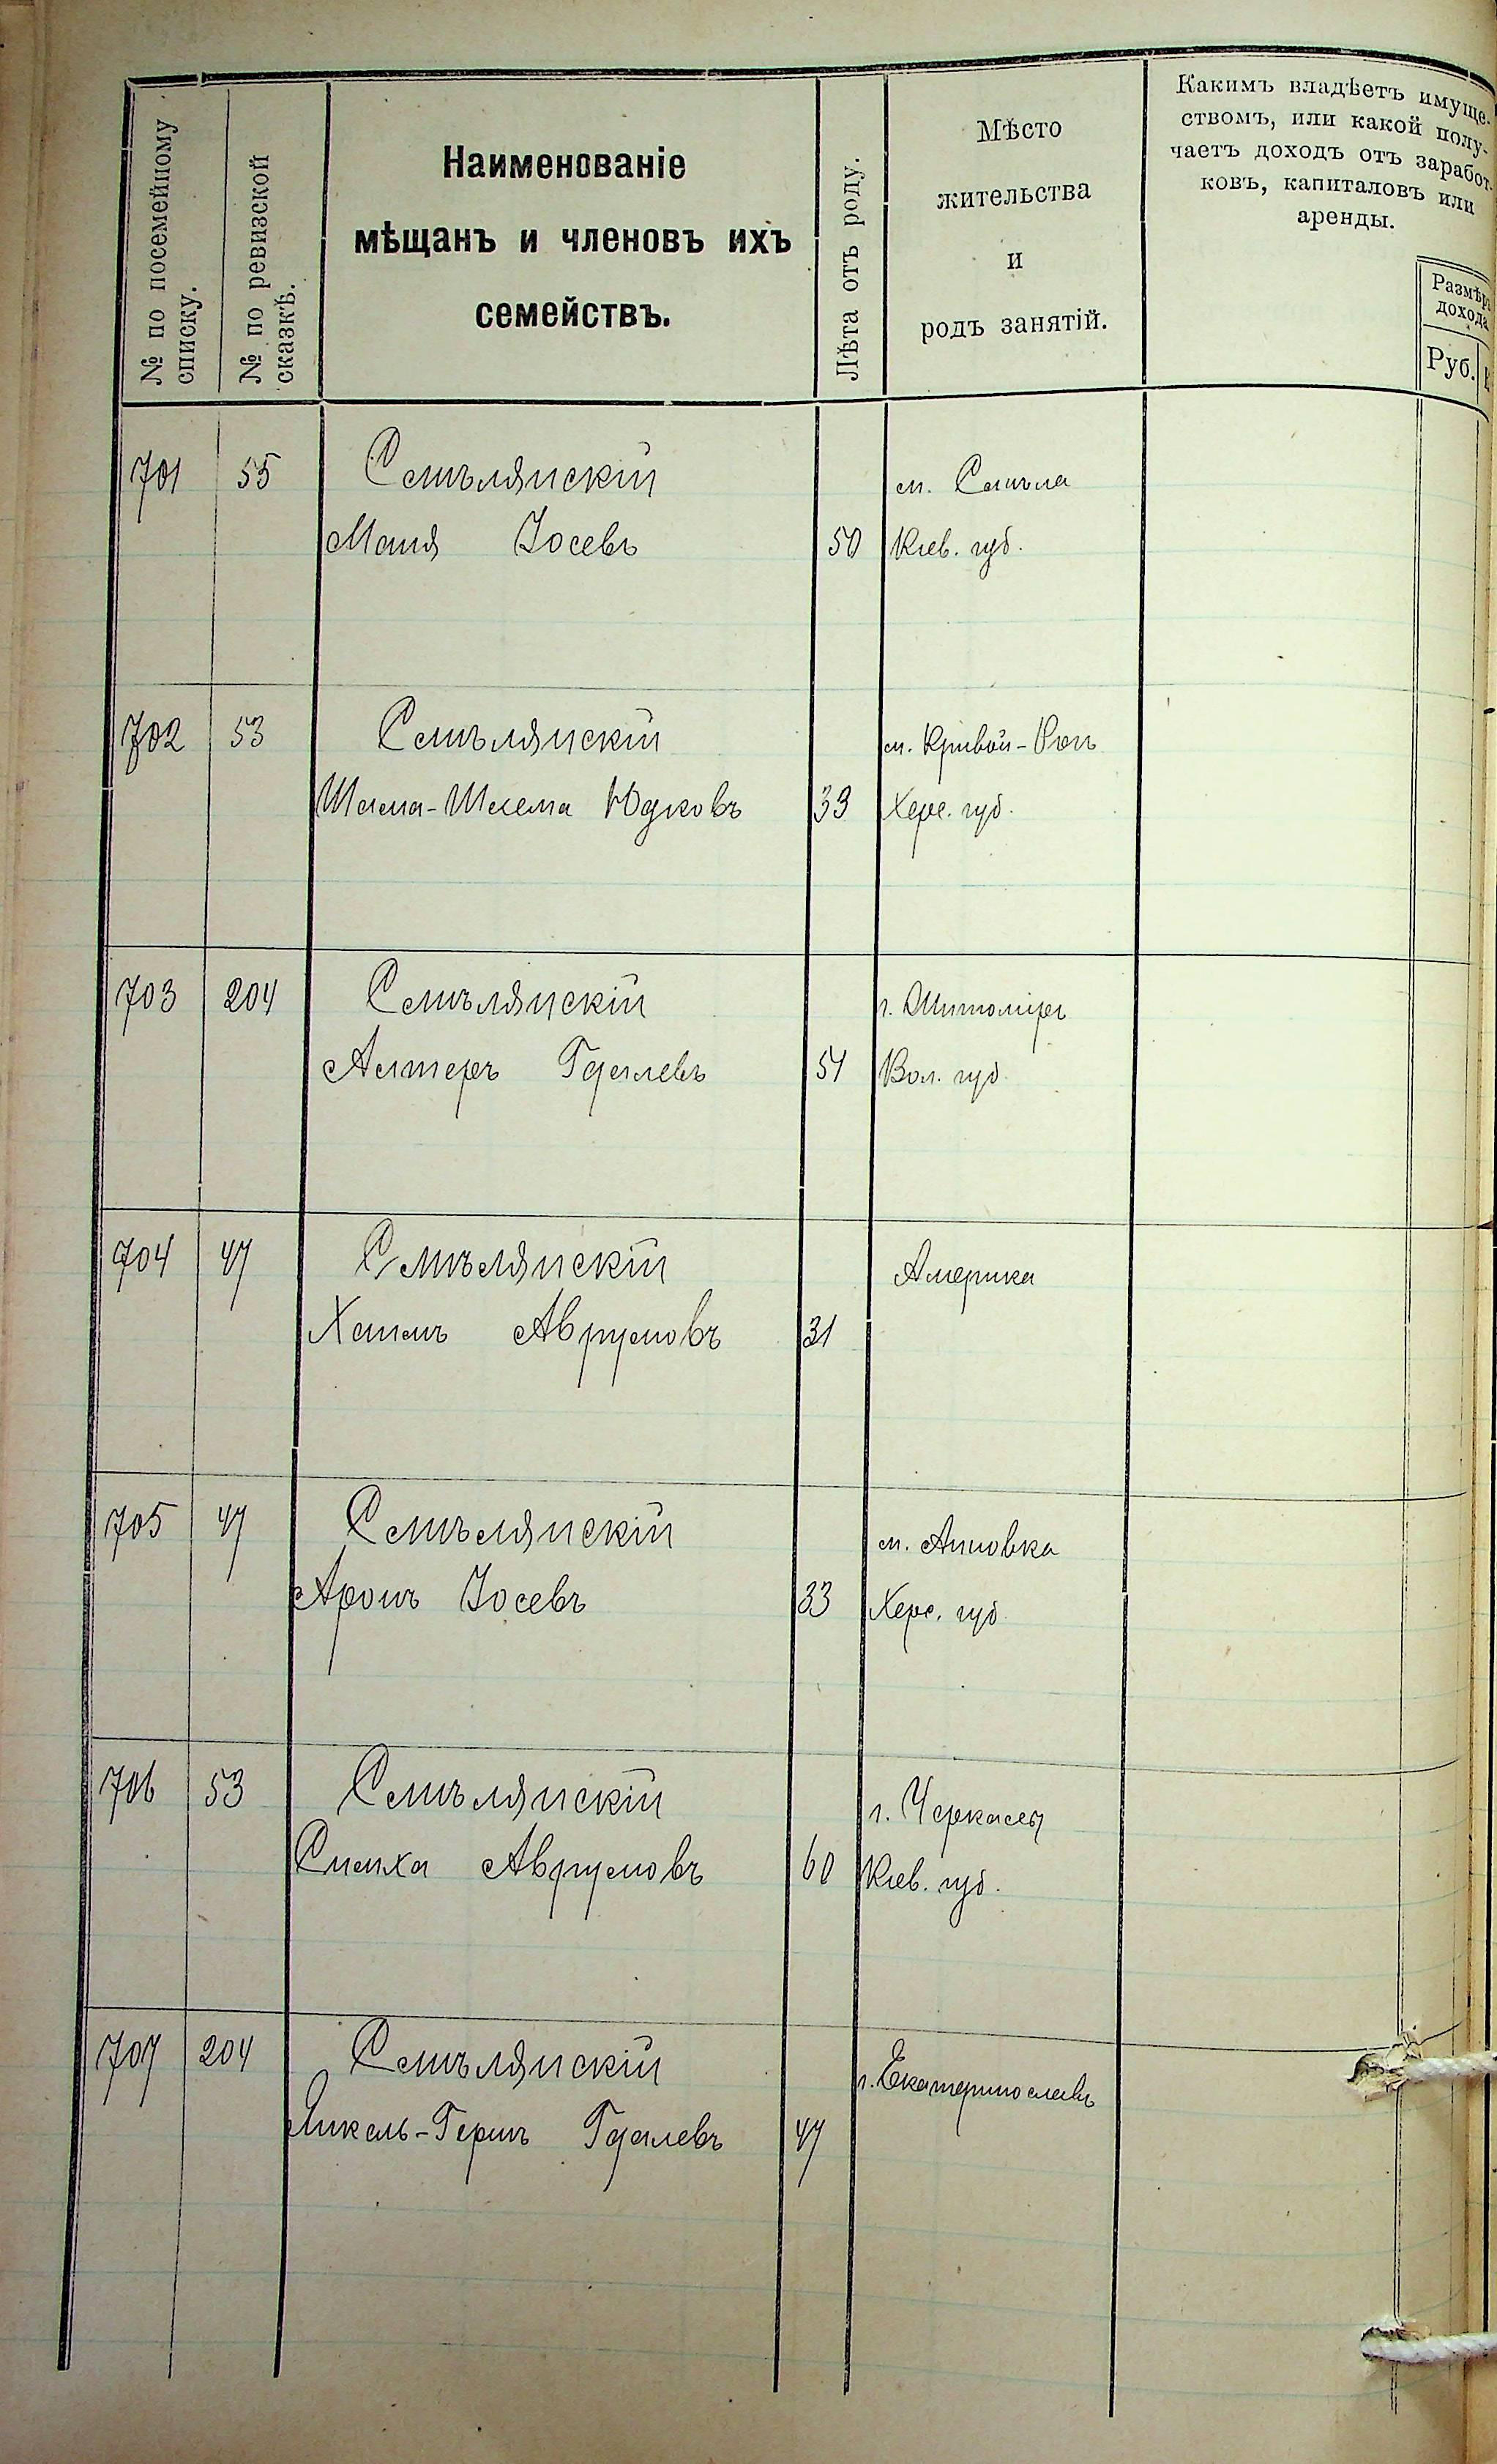 № по посемейному
списку.
№ по ревизской
сказкѣ.
Наименованіе
мѣщанъ и членовъ ихъ
семействъ.
Лѣта отъ роду.
Мѣсто
жительства
и
родъ занятій.
Какимъ владѣетъ имуще-
ствомъ, или какой полу-
чаетъ доходъ отъ заработ-
ковъ, капиталовъ или
аренды.
Размѣръ
дохода
Руб.
701 55 Смѣлянскій м. Смѣла
Маня Іосевъ 50 Кіев. губ.
702 53 Смѣлянскій м. Кривой-Рогъ
Юдковъ 33 Херс. губ.
703 204 Смѣлянскій г. Житоміръ
Алтеръ Гдалевъ 51 Вол. губ.
704 47 Смѣлянскій Америка
Аврумовъ 31
705 47 Смѣлянскій м. Анновка
Аронъ Іосевъ 33 Херс. губ.
706 53 Смѣлянскій г. Черкасы
Симха Аврумовъ 60 Кіев. губ.
707 204 Смѣлянскій г. Екатеринославъ
Янкель-Гершъ Гдалевъ 47